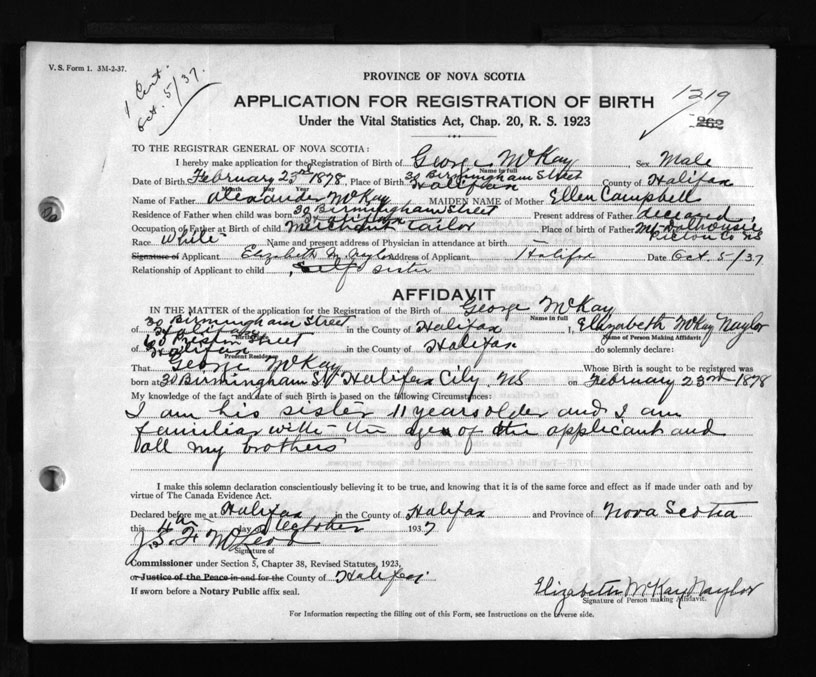 V. S. Form 1. 3M-2-37.
1 Cert.
Oct. 5/37.
PROVINCE OF NOVA SCOTIA
APPLICATION FOR REGISTRATION OF BIRTH
Under the Vital Statistics Act, Chap. 20, R. S. 1923
1219
262
TO THE REGISTRAR GENERAL OF NOVA SCOTIA:
I hereby make application for the Registration of Birth of George McKay Sex Male
Name in full
30 Birmingham Street
Date of Birth February 23rd 1878, Place of Birth Halifax County of Halifax
Month Day Year
Name of Father Alexander McKay MAIDEN NAME of Mother Ellen Campbell
30 Birmingham Street
Residence of Father when child was born Halifax Present address of Father deceased
Occupation of Father at Birth of child Merchant Tailor Place of birth of Father Mt. Dalhousie
Pictou Co NS
Race White Name and present address of Physician in attendance at birth
Signature of Applicant Elizabeth M. Naylor Address of Applicant Halifax Date Oct 5/37
Relationship of Applicant to child Self sister
AFFIDAVIT
IN THE MATTER of the application for the Registration of the Birth of George McKay
Name in full
30 Birmingham Street
of Halifax in the County of Halifax I, Elizabeth McKay Naylor
60 Preston Street
Name of Person Making Affidavit
of Halifax in the County of Halifax do solemnly declare:
Present Residence
That George McKay Whose Birth is sought to be registered was
born at 30 Birmingham St Halifax City, NS on February 23rd 1878
My knowledge of the fact and date of such Birth is based on the following Circumstances:
I am his sister 11 years older and I am
familiar with the ages of the applicant and
all my brothers
I make this solemn declaration conscientiously believing it to be true, and knowing that it is of the same force and effect as if made under oath and by
virtue of The Canada Evidence Act.
Declared before me at Halifax in the County of Halifax and Province of Nova Scotia
this day of October 1937
McLeod
Signature of
Commissioner under Section 5, Chapter 38, Revised Statutes, 1923,
or Justice of the Peace in and for the County of Halifax
If sworn before a Notary Public affix seal.
Elizabeth McKay Naylor
Signature of Person making Affidavit.
For Information respecting the filling out of this Form, see Instructions on the reverse side.